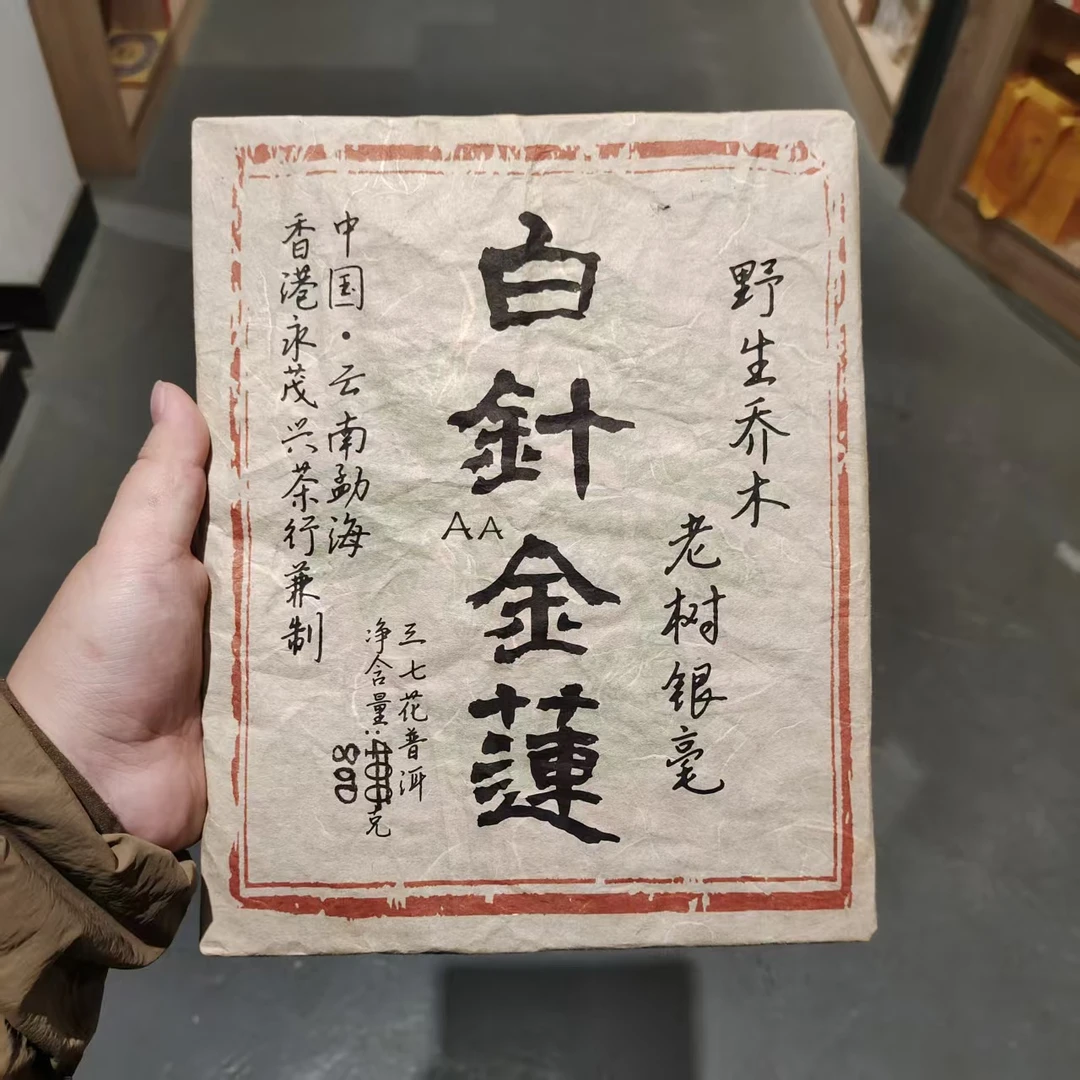 野生乔木
老树银毫
白針金蓮
AA
三七花普洱
净含量:
800
克
中国·云南勐海
香港永茂兴茶行兼制